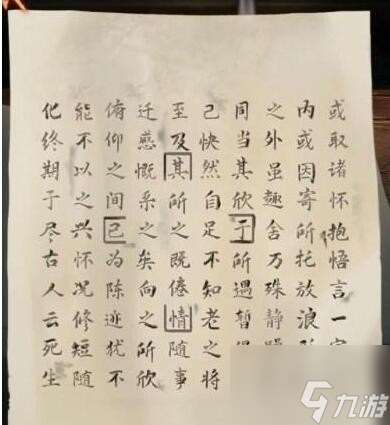 或取诸怀抱悟言一
内或因寄所托放浪
之外虽趣舍万殊静
同当其欣于所遇暂
己快然自足不知老之将
至及其所之既倦情随事
迁感慨系之矣向之所欣
俯仰之间已为陈迹犹不
能不以之兴怀况修短随
化终期于尽古人云死生
九游